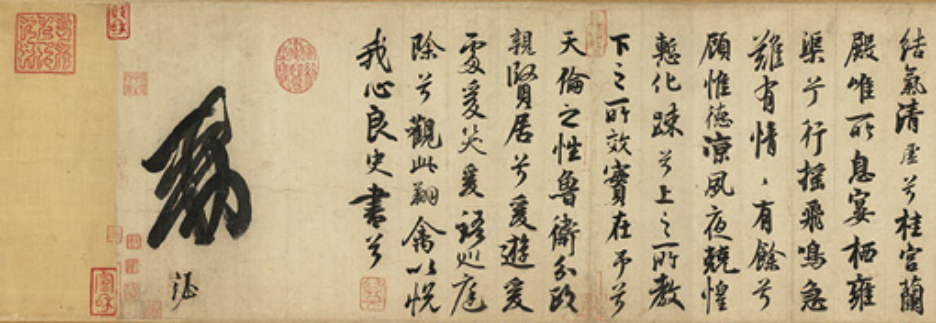 結氣清虛兮桂宮蘭
殿唯所息宴栖雍
渠兮行搖飛鳴急
難有情、有餘兮
顧惟德涼夙夜兢惶
慙化踈兮上之所教
下之所效實在予兮
天倫之性魯衛分政
親賢居兮爰遊爰
處爰笑爰語巡庭
除兮觀此翔禽以悅
我心良史書兮